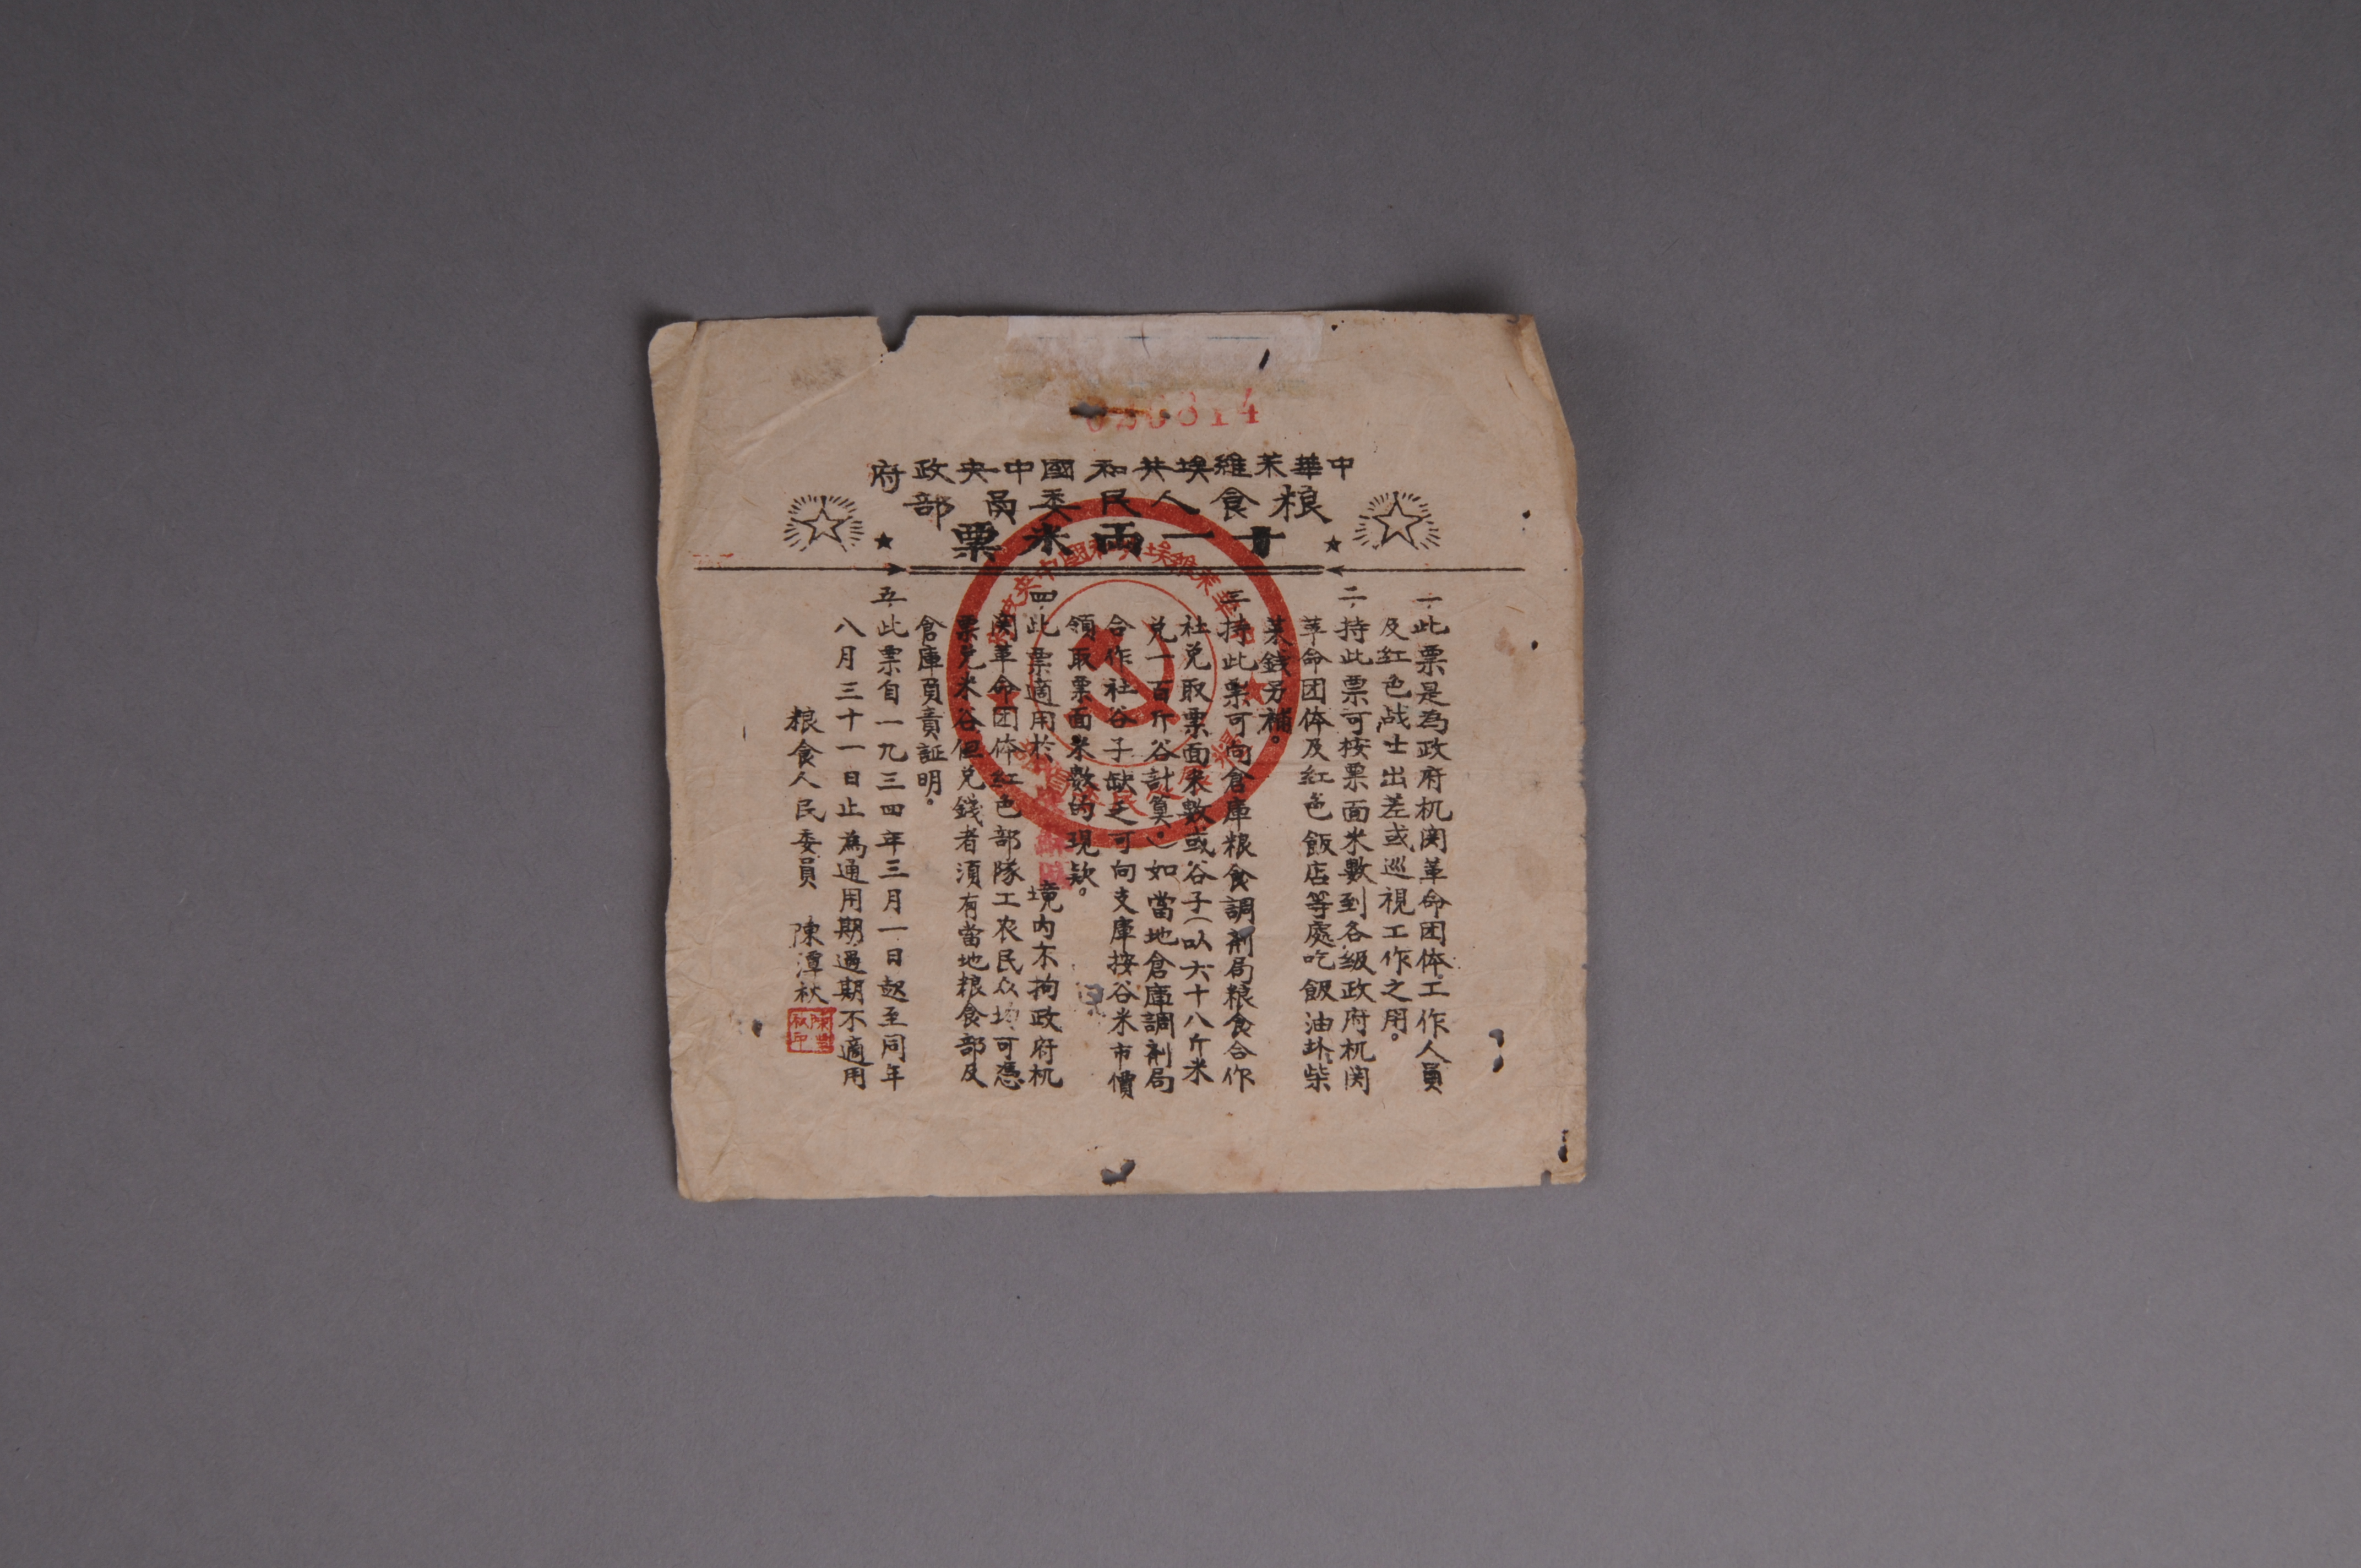 中華苏維埃共和國中央政府
粮食人民委員部
十一兩米票
一、此票是為政府机関革命团体工作人員
及紅色战士出差或巡視工作之用。
二、持此票可按票面米數到各級政府机関
革命团体及紅色飯店等處吃飯油盐柴
菜錢另補。
三、持此票可向倉庫粮食調剤局粮食合作
社兑取票面米數或谷子(以六十八斤米
兑一百斤谷計算。)如當地倉庫調剤局
合作社谷子缺乏可向支庫按谷米市價
領取票面米數的現欵。
四、此票適用於 境内不拘政府机
関革命团体紅色部隊工农民众均可憑
票兑米谷但兑錢者須有當地粮食部及
倉庫負責証明。
五、此票自一九三四年三月一日起至同年
八月三十一日止為通用期過期不適用
粮食人民委員 陳潭秋